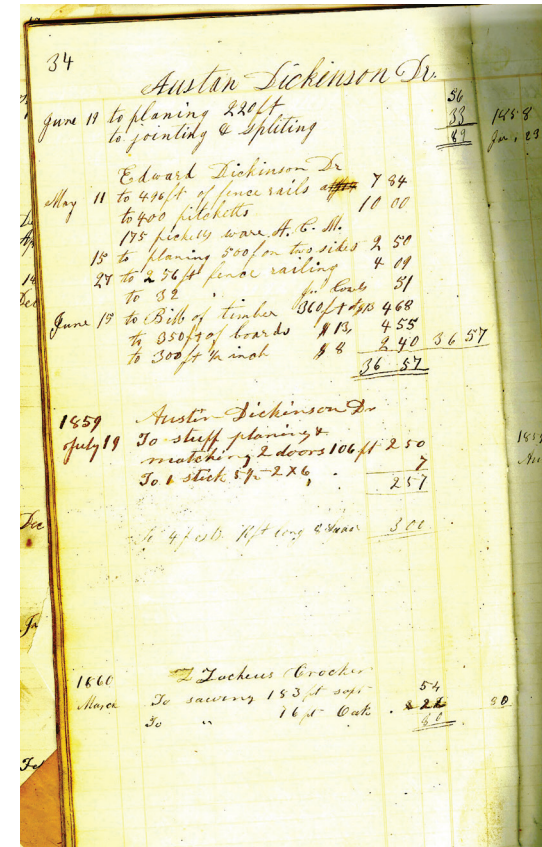 34
Austan Dickinson Dr.
56
June 19 to planing 220 ft 33 1858
to jointing & Spliting 89 Jan, 23
Edward Dickinson Dr
May 11 to 496 ft of fence rails 7 84
to 400 picketts 10 00
175 picketts ware A. C. M.
15 to planing 500 f on two sides 2 50
27 to 256 ft fence railing 4 09
to 32 " 51
June 15 to Bill of timber 360 ft 4 68
to 350 ft of boards $13, 4 55
to 300 ft ½ inch $8 2 40 36 57
36 57
1859 Austin Dickinson Dr
July 19 To stuff planing &
matching 2 doors 106 ft 2 50
To 1 stick 5½ 2X6, 7
2 57
4 ft long 3 00
1860 Zacheus Crocker
March To sawing 183 ft soft 54
To " 16 ft Oak 26 80
80